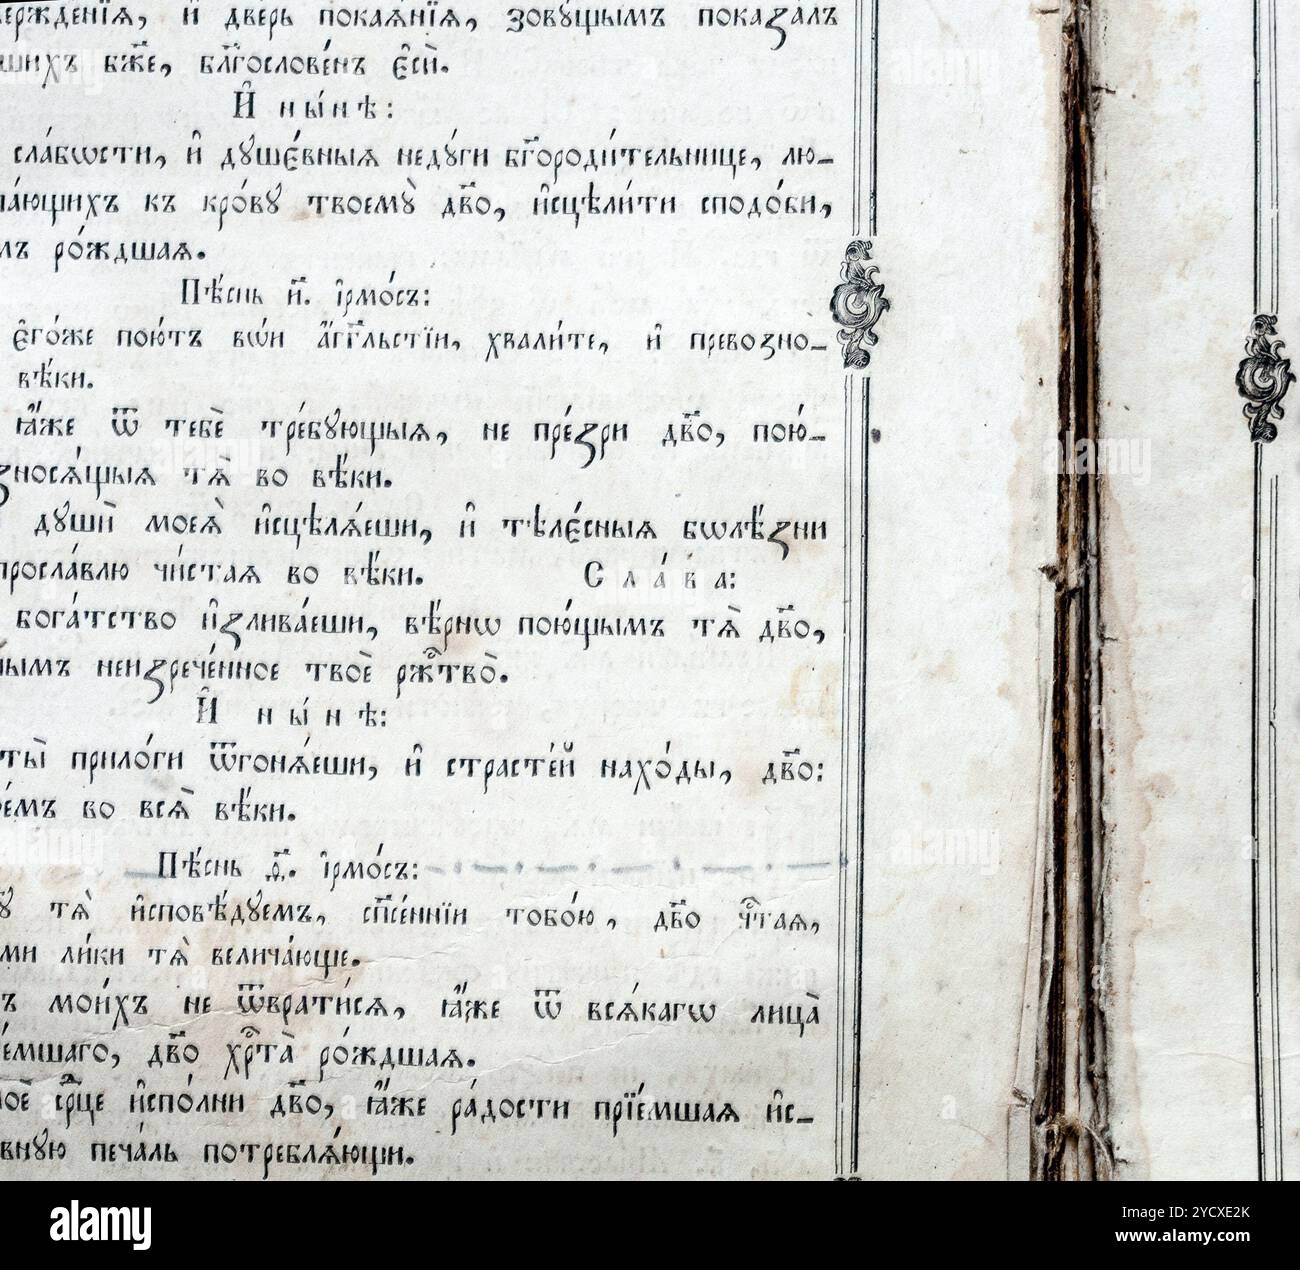 ержде́нїѧ, и҆ две́рь покаѧ́нїѧ, зовꙋ́щымъ показа́лъ
шихъ бж҃е, бл҃гослове́нъ є҆сѝ.
И҆ ны́нѣ:
сла́бѡсти, и҆ дꙋшє́вныѧ недꙋ́ги бг҃ороди́тельнице, лю-
ца́ющихъ къ кро́вꙋ твоемꙋ̀ дв҃о, и҆сцѣли́ти сподо́би,
мъ ро́ждшаѧ.
Пѣ́снь и҃. і҆рмо́съ:
є҆го́же пою́тъ вѡ́и а҆́гг҃льстїи, хвали́те, и҆ превозно-
вѣ́ки.
ꙗ҆̀же ѿ тебє̀ тре́бꙋющыѧ, не пре́зри дв҃о, пою́-
зносѧ́щыѧ тѧ̀ во вѣ́ки.
дꙋшѝ моеѧ̀ и҆сцѣлѧ́еши, и҆ тѣлє́сныѧ бѡлѣ́зни
прославлю чи́стаѧ во вѣ́ки. Сла́ва:
бога́тство и҆злива́еши, вѣ́рнѡ пою́щымъ тѧ̀ дв҃о,
ымъ неизрече́нное твоѐ ржⷭ҇тво̀.
И҆ ны́нѣ:
ты̀ прило́ги ѿгонѧ́еши, и҆ страсте́й нахо́ды, дв҃о:
е́мъ во всѧ̀ вѣ́ки.
Пѣ́снь ѳ҃. і҆рмо́съ:
ꙋ тѧ̀ и҆сповѣ́дꙋемъ, сп҃се́ннїи тобо́ю, дв҃о чⷭ҇таѧ,
ми ли́ки тѧ̀ велича́юще.
ъ мои́хъ не ѿврати́сѧ, ꙗ҆́же ѿ всѧ́кагѡ лица̀
е́мшаго, дв҃о хрⷭ҇та̀ ро́ждшаѧ.
моѐ срⷣце и҆спо́лни дв҃о, ꙗ҆́же ра́дости прїе́мшаѧ и҆с-
внꙋю печа́ль потреблѧ́ющи.
alamy
Image ID: YCXE2K
www.alamy.com